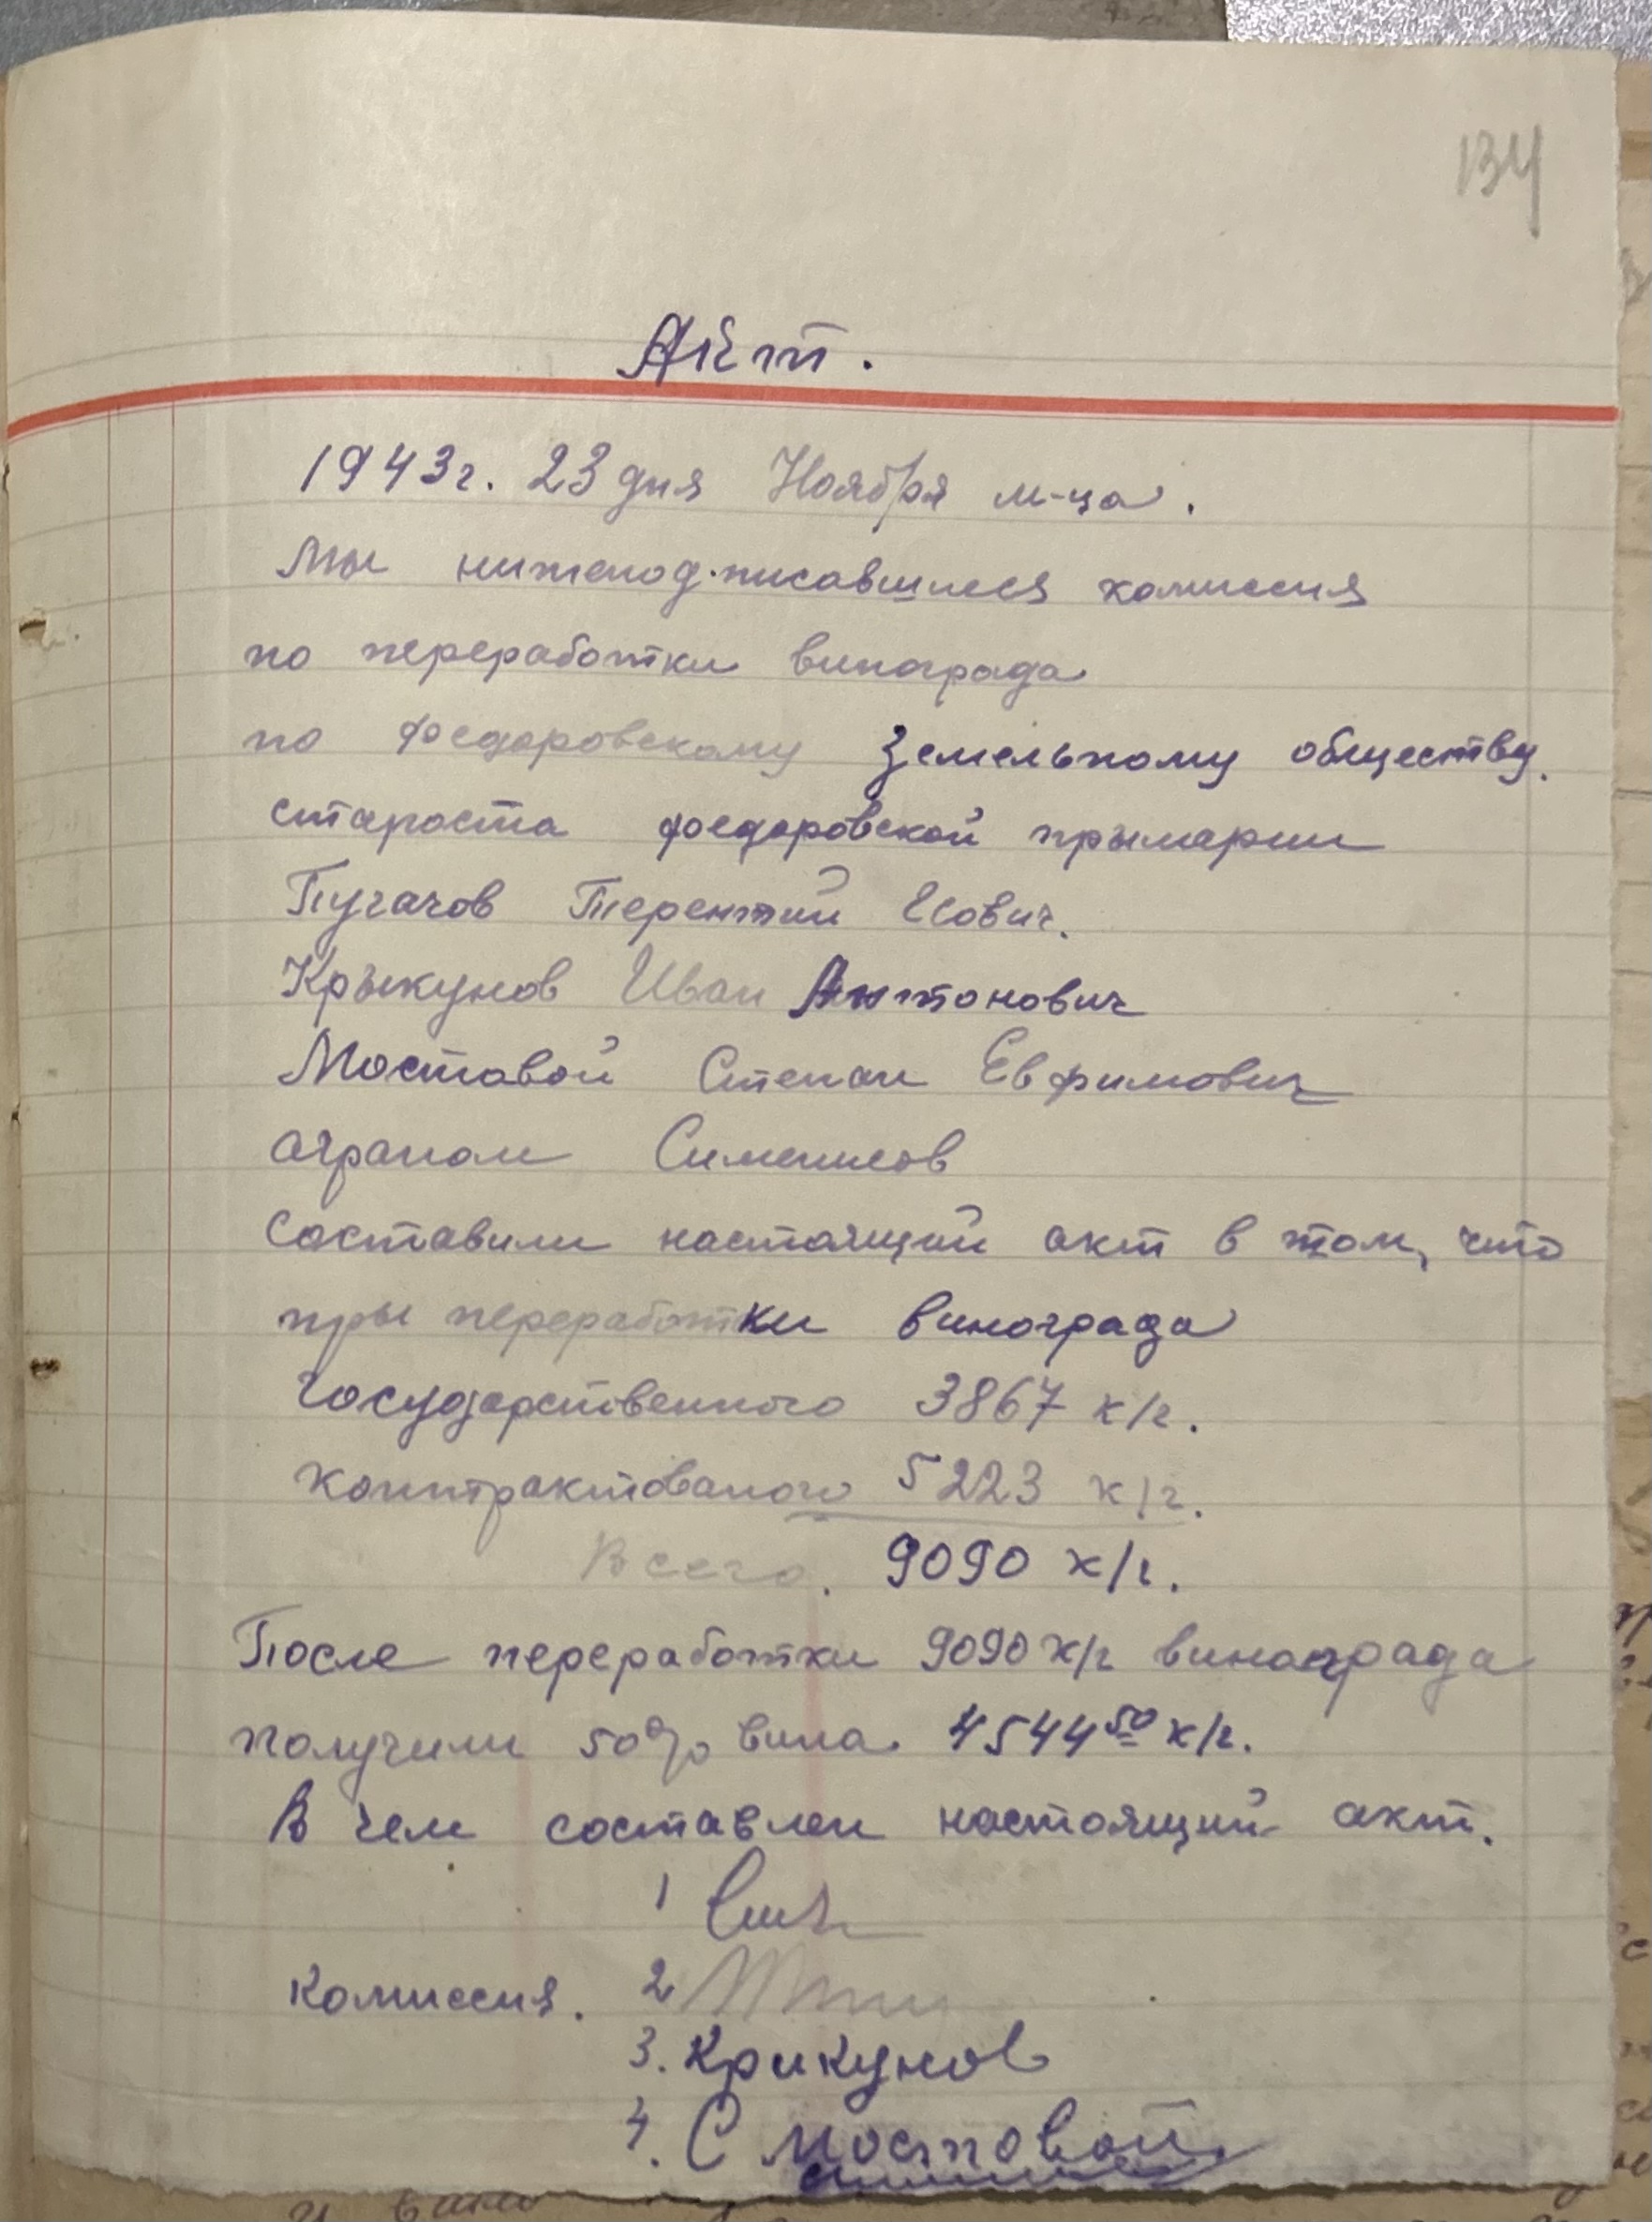 134
Акт.
1943г. 23 дня Ноября м-ца.
Мы нижеподписавшиеся комиссия
по переработки винограда
по Федоровскому Земельному обществу.
староста федоровской прымарии
Пугачов Терентий Иович.
Крыкунов Иван Антонович
Моставой Степан Евфимович
аграном
составили настоящий акт в том, что
пры переработки винограда
Государственного 3867 к/г.
контрактованого 5223 к/г.
Всего. 9090 к/г.
После переработки 9090 к/г винограда
получили 50% вина 4544 50 к/г.
В чем составлен настоящий акт.
1
Комиссия. 2
3. Крикунов
4. С Мостовой